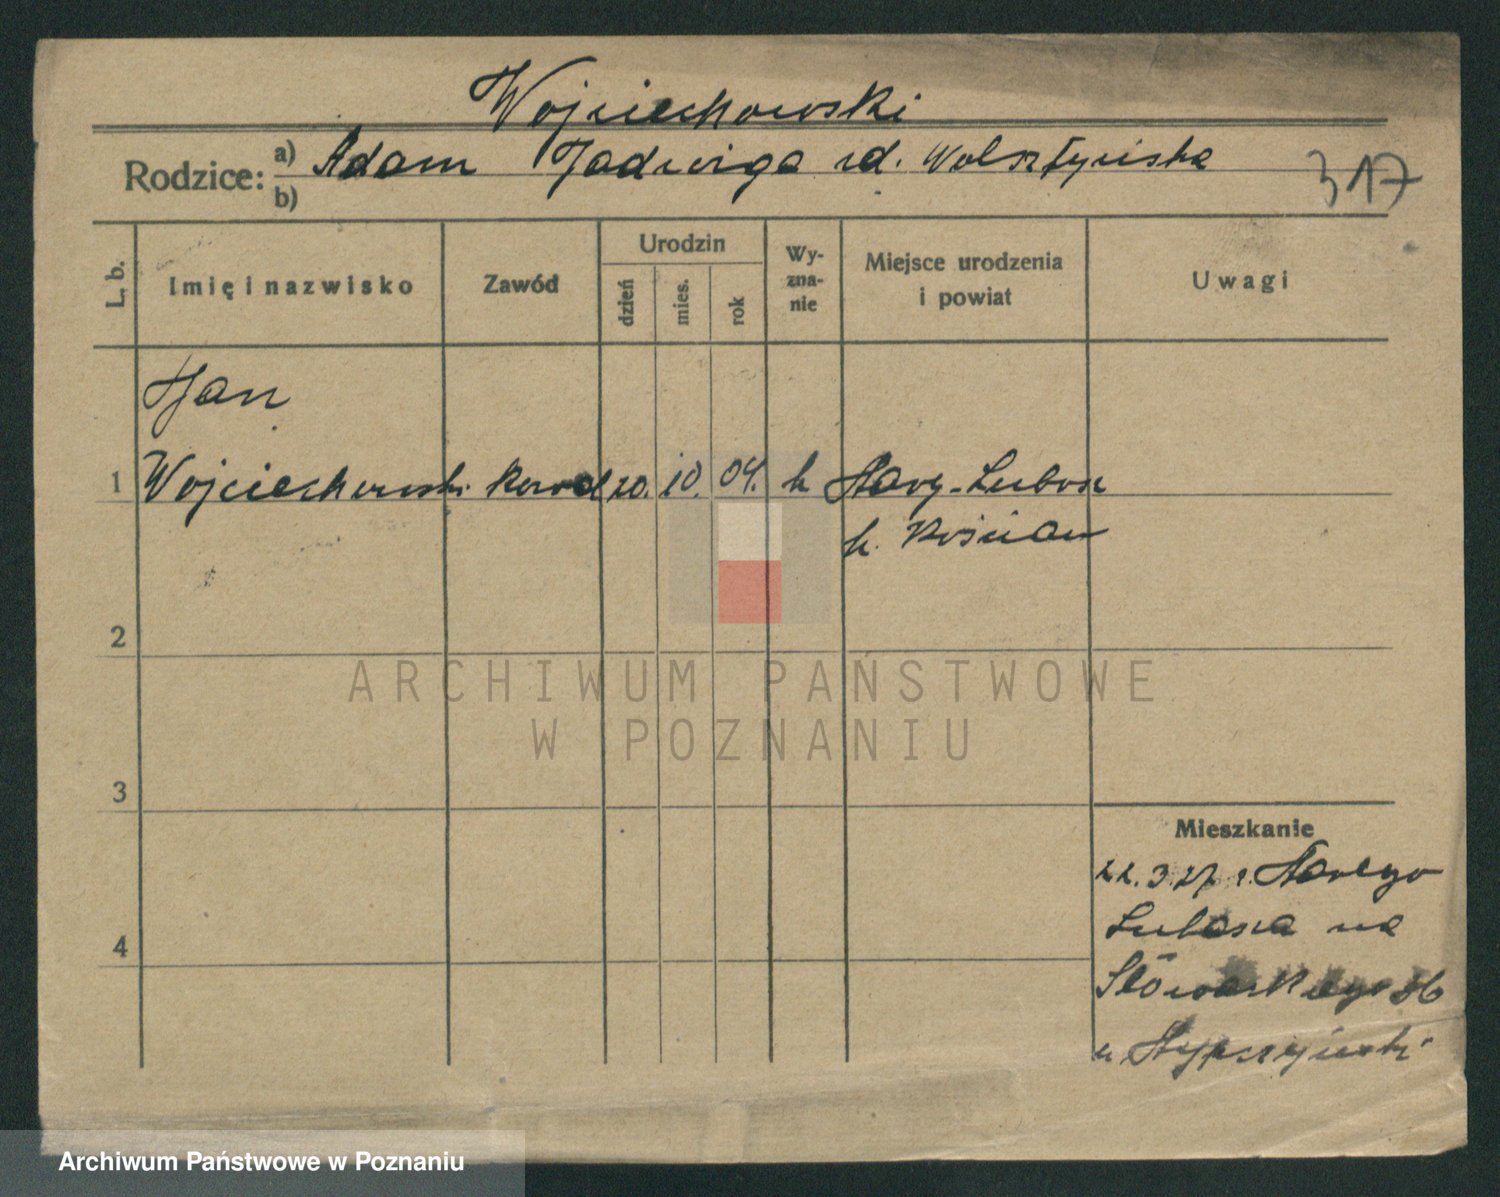 Wojciechowski
Rodzice: a) Adam Jadwiga zd. Wolsztyńska
b)
317
L. b. Imię i nazwisko Zawód Urodzin dzień mies. rok Wyznanie Miejsce urodzenia i powiat Uwagi
Jan
1 Wojciechowski kowal 20. 10. 04. k Stary-Lubosz
p. Kościan
2
3
4
Mieszkanie
22.3.27 z Starego
Lubosza na
Słowackiego 36
u
ARCHIWUM PAŃSTWOWE
W POZNANIU
Archiwum Państwowe w Poznaniu